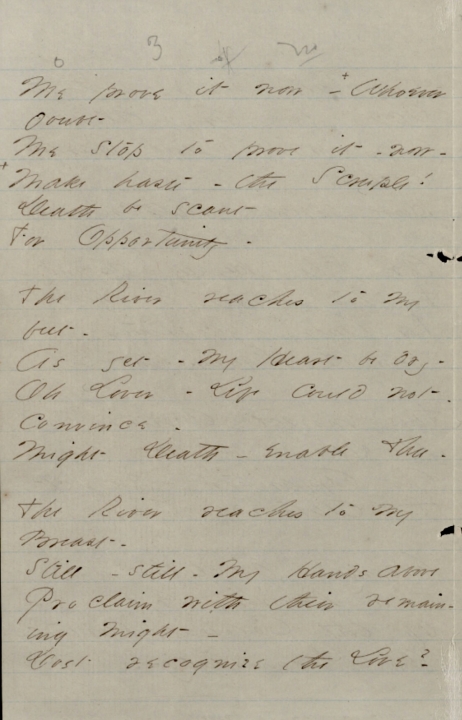 Me prove it now - Whoever
doubt -
Me stop to prove it - now -
Make haste - the Scruple!
Death be scant
For Opportunity -
The River reaches to my
feet -
As yet - My Heart be dry -
Oh Lover - Life could not
Convince -
Might Death - enable Thee -
The River reaches to my
Breast -
Still - still - My Hands above
Proclaim with their remain-
ing Might -
Dost recognize the Love?